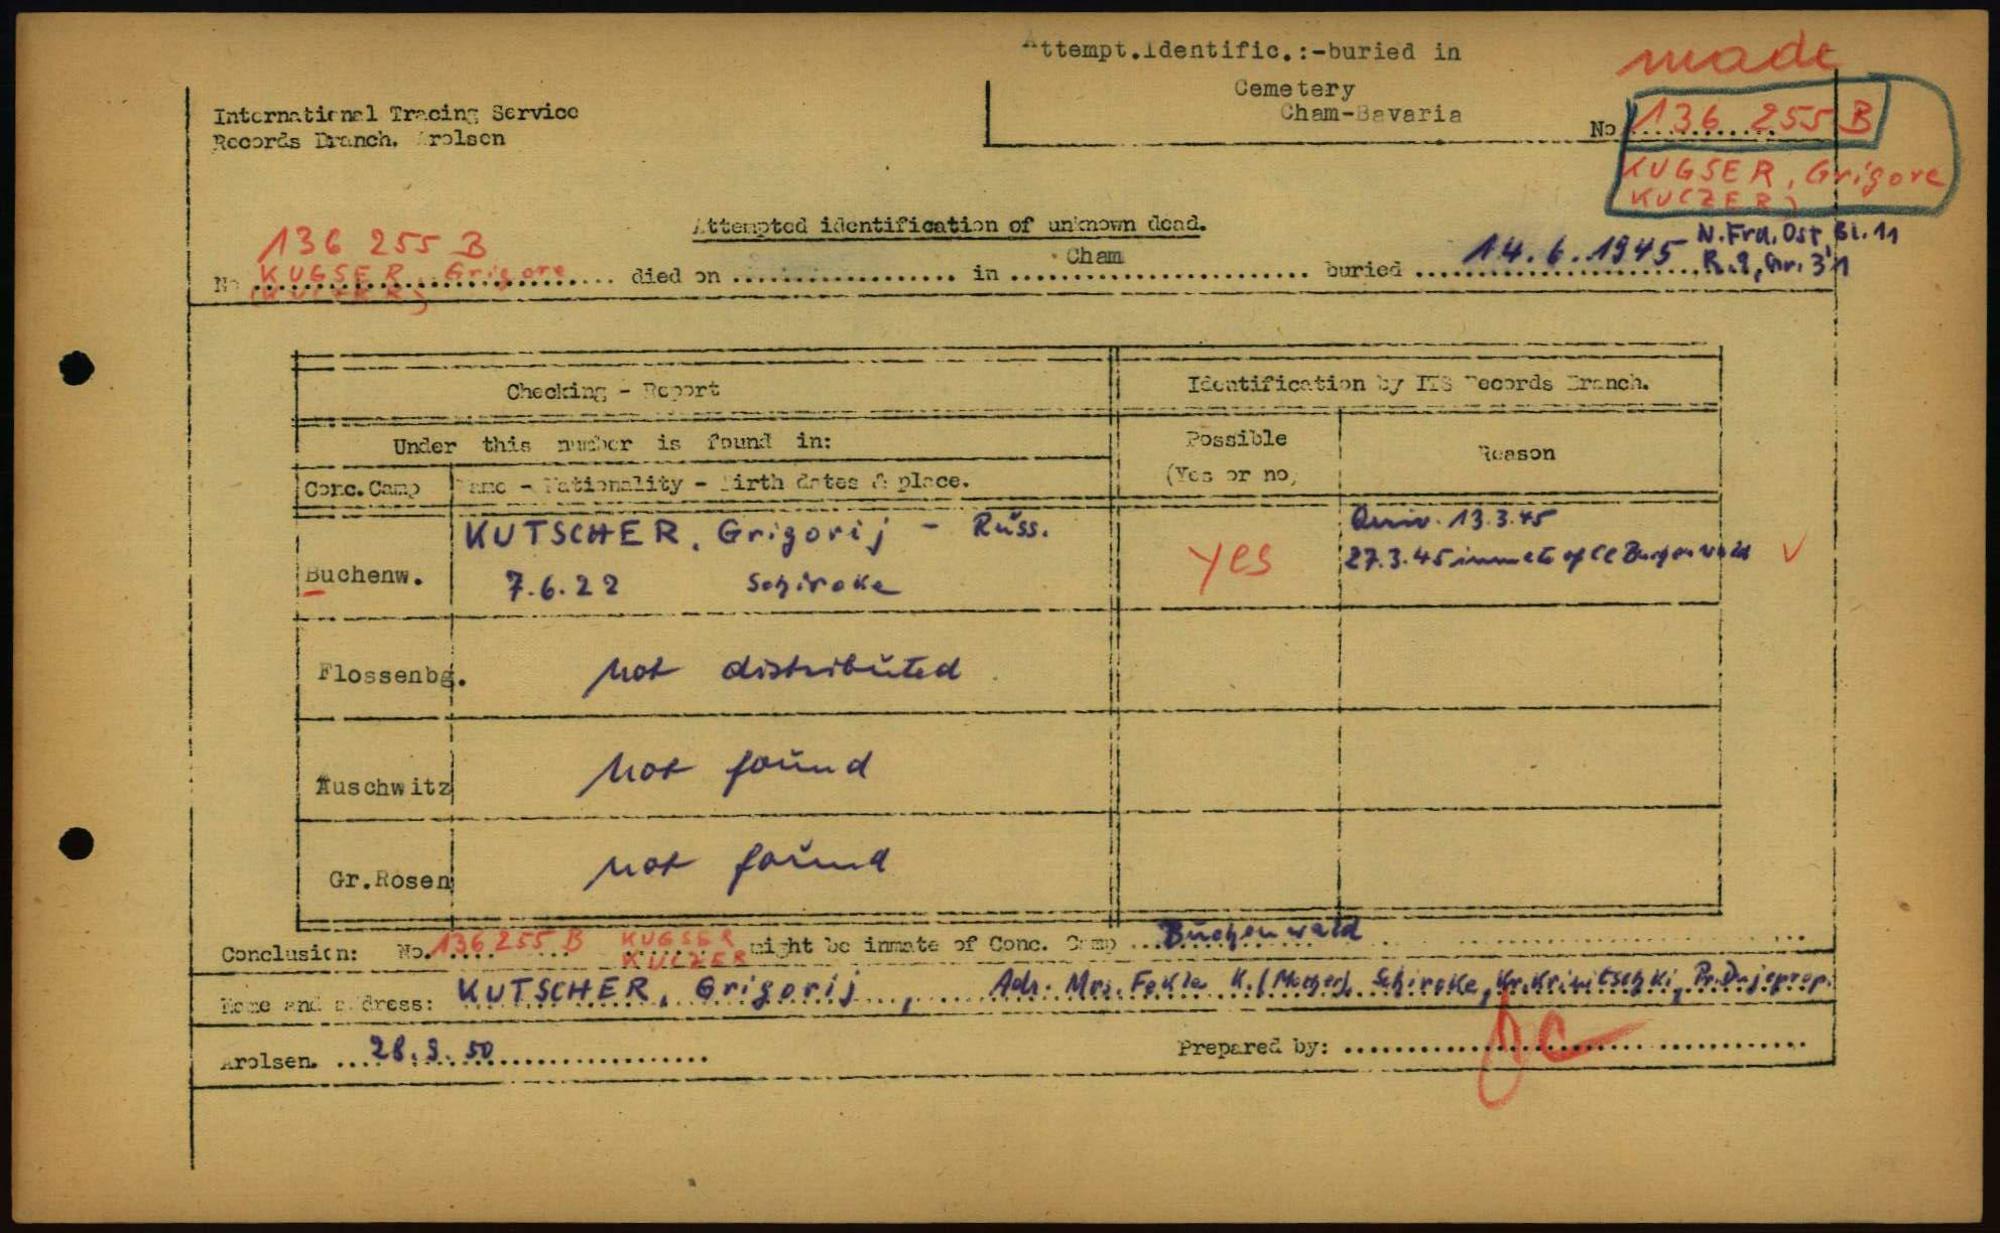 Attempt.Identific.:-buried in
Cemetery
Cham-Bavaria
made
International Tracing Service
Records Branch. Arolsen
No 136 255 B
KUGSER, Grigore
KUCZER)
Attempted identification of unknown dead.
136 255 B
No KUGSER, Grigore died on .......... in Cham buried 14.6.1945 N.Frd. Ost, Bl. 11
(KUCZER) R. 2, Gr. 31
Checking - Report
Identification by ITS Records Branch.
Under this number is found in:
Possible
(Yes or no)
Reason
Conc.Camp
Name - Nationality - Birth dates & place.
Buchenw.
KUTSCHER, Grigorij - Russ.
7.6.22 Schiroke
yes
13.3.45
27.3.45 inmate of CC Buchenwald
Flossenbg.
not distributed
Auschwitz
not found
Gr.Rosen
not found
Conclusion: No. 136 255 B KUGSER might be inmate of Conc. Camp Buchenwald
KUCZER
Name and address: KUTSCHER, Grigorij, Adr. Mrs. Fekla K. (Mother), Schiroke, Kr. Kriwitschki, Dnjeprop.
Arolsen. 28.9.50
Prepared by: